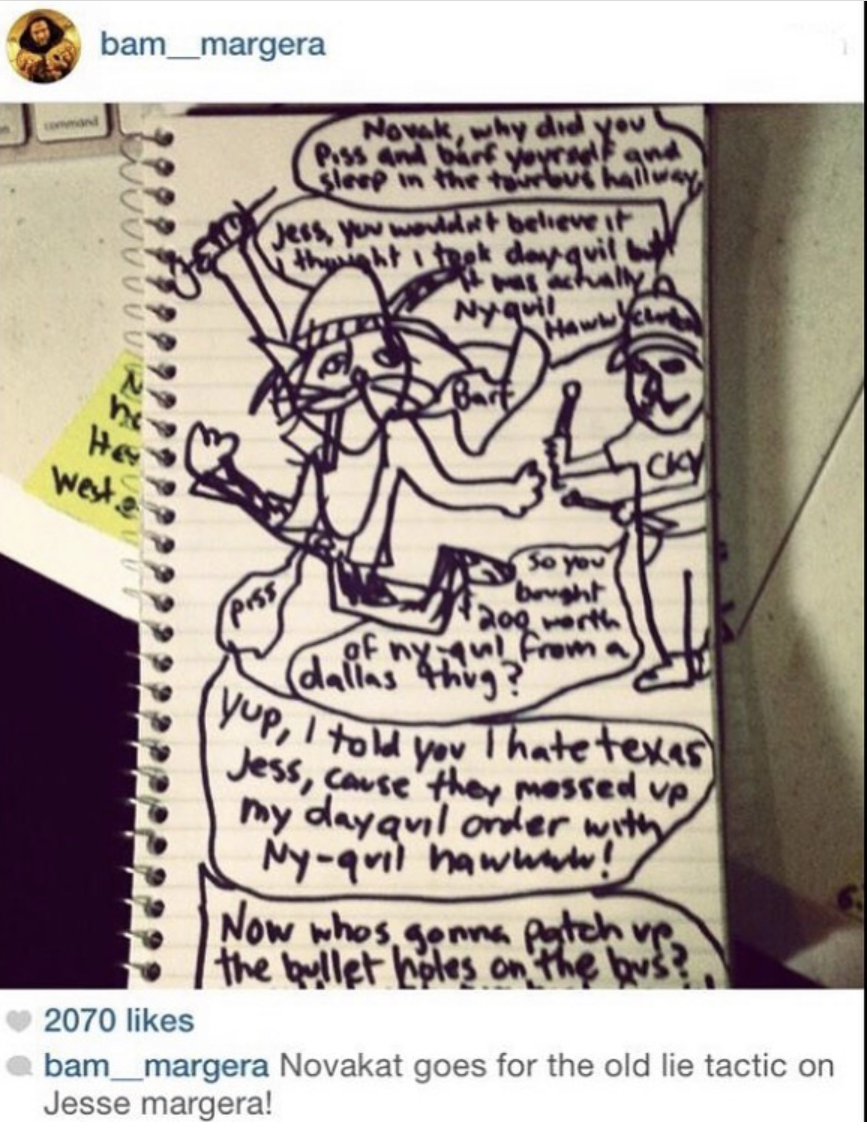 bam__margera
command
Novak, why did you
piss and barf yourself and
sleep in the tourbus hallway
Jess, you wouldn't believe it
I thought I took day-quil but
it was actually
Ny-quil
Haww!
Barf
CKY
piss
So you
bought
$200 worth
of ny-quil from a
dallas thug?
Yup, I told you I hate texas
Jess, cause they messed up
my dayquil order with
Ny-quil hawwww!
Now whos gonna patch up
the bullet holes on the bus?
West
2070 likes
bam__margera Novakat goes for the old lie tactic on
Jesse margera!